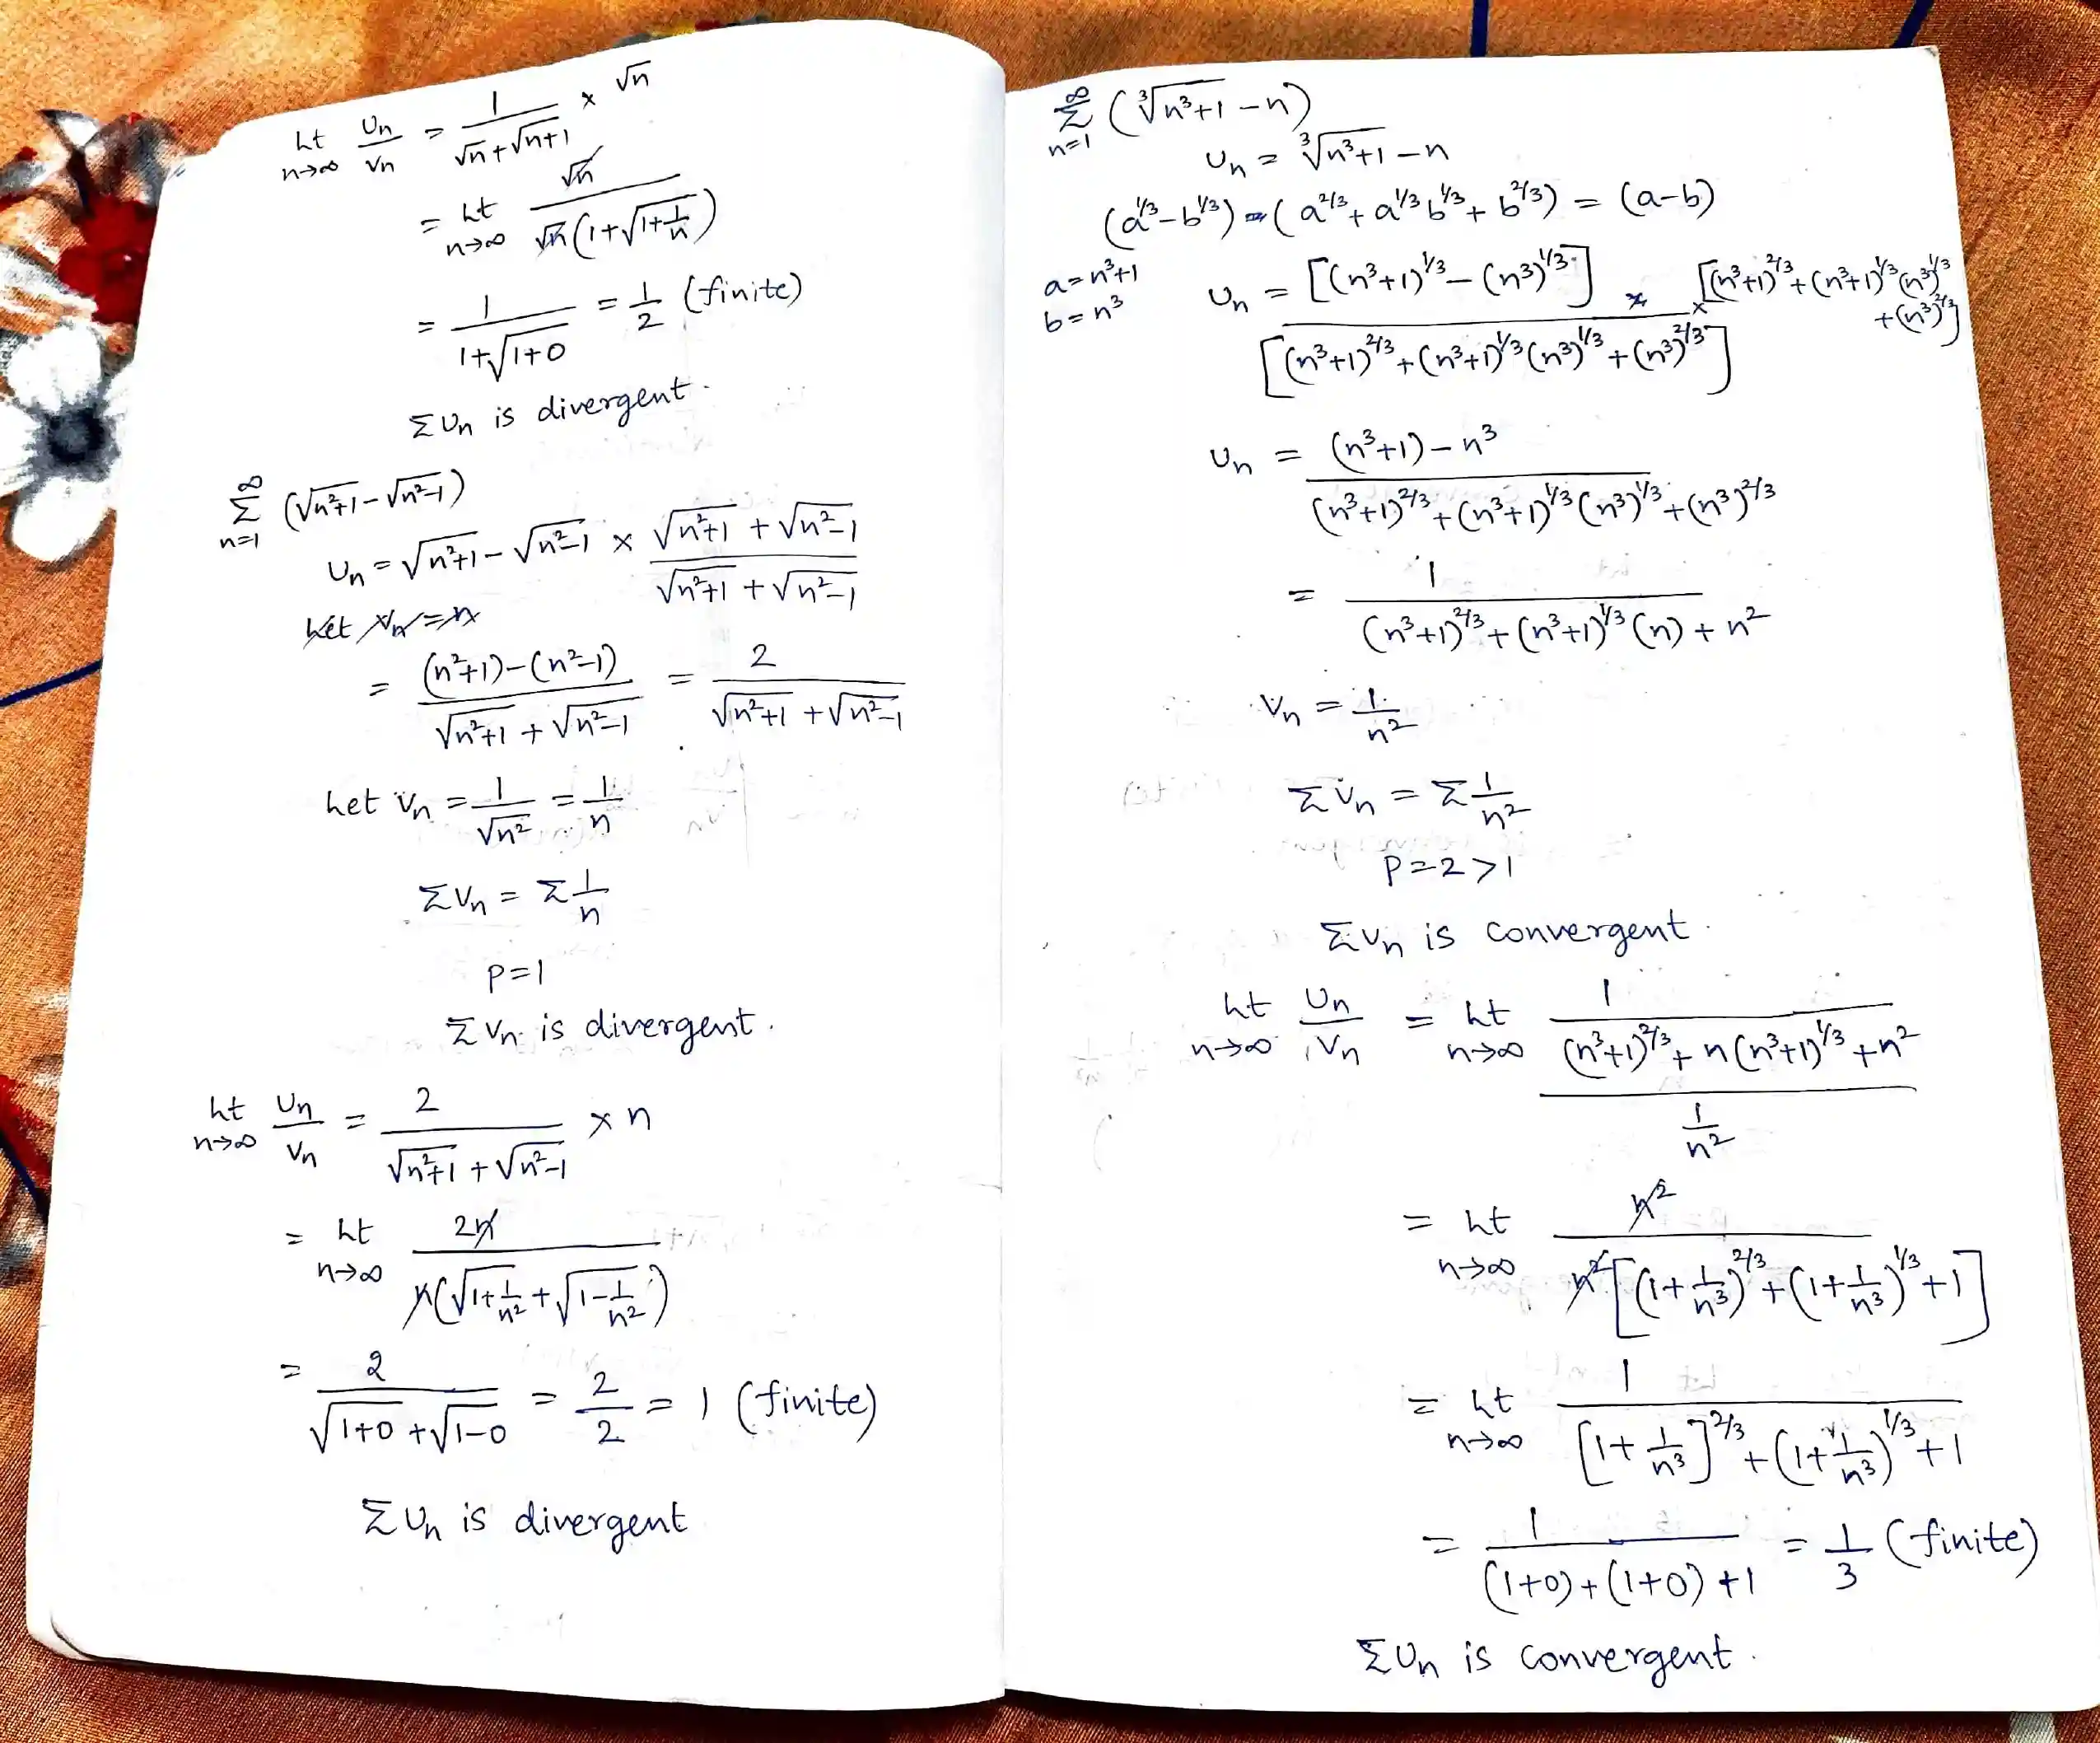 Lt n→∞ Un/Vn = 1/(√n+√n+1) × √n
= Lt n→∞ √n/(√n(1+√1+1/n))
= 1/(1+√1+0) = 1/2 (finite)
ΣUn is divergent.
∞Σn=1 (√n²+1 - √n²-1)
Un = √n²+1 - √n²-1 × (√n²+1 + √n²-1)/(√n²+1 + √n²-1)
Let Vn = n
= ((n²+1)-(n²-1))/(√n²+1 + √n²-1) = 2/(√n²+1 + √n²-1)
Let Vn = 1/√n² = 1/n
ΣVn = Σ1/n
P=1
ΣVn is divergent.
Lt n→∞ Un/Vn = 2/(√n²+1 + √n²-1) × n
= Lt n→∞ 2n/(n(√1+1/n² + √1-1/n²))
= 2/(√1+0 + √1-0) = 2/2 = 1 (finite)
ΣUn is divergent
∞Σn=1 (³√n³+1 - n)
Un = ³√n³+1 - n
(a^1/3 - b^1/3) (a^2/3 + a^1/3 b^1/3 + b^2/3) = (a-b)
a = n³+1
b = n³
Un = [(n³+1)^1/3 - (n³)^1/3] × [(n³+1)^2/3 + (n³+1)^1/3 (n³)^1/3 + (n³)^2/3]
[(n³+1)^2/3 + (n³+1)^1/3 (n³)^1/3 + (n³)^2/3]
Un = ((n³+1) - n³)/((n³+1)^2/3 + (n³+1)^1/3 (n³)^1/3 + (n³)^2/3)
= 1/((n³+1)^2/3 + (n³+1)^1/3 (n) + n²)
Vn = 1/n²
ΣVn = Σ1/n²
P=2>1
ΣVn is convergent.
Lt n→∞ Un/Vn = Lt n→∞ 1/((n³+1)^2/3 + n(n³+1)^1/3 + n²)
1/n²
= Lt n→∞ n²/(n²[(1+1/n³)^2/3 + (1+1/n³)^1/3 + 1])
= Lt n→∞ 1/([1+1/n³]^2/3 + (1+1/n³)^1/3 + 1)
= 1/((1+0)+(1+0)+1) = 1/3 (finite)
ΣUn is convergent.